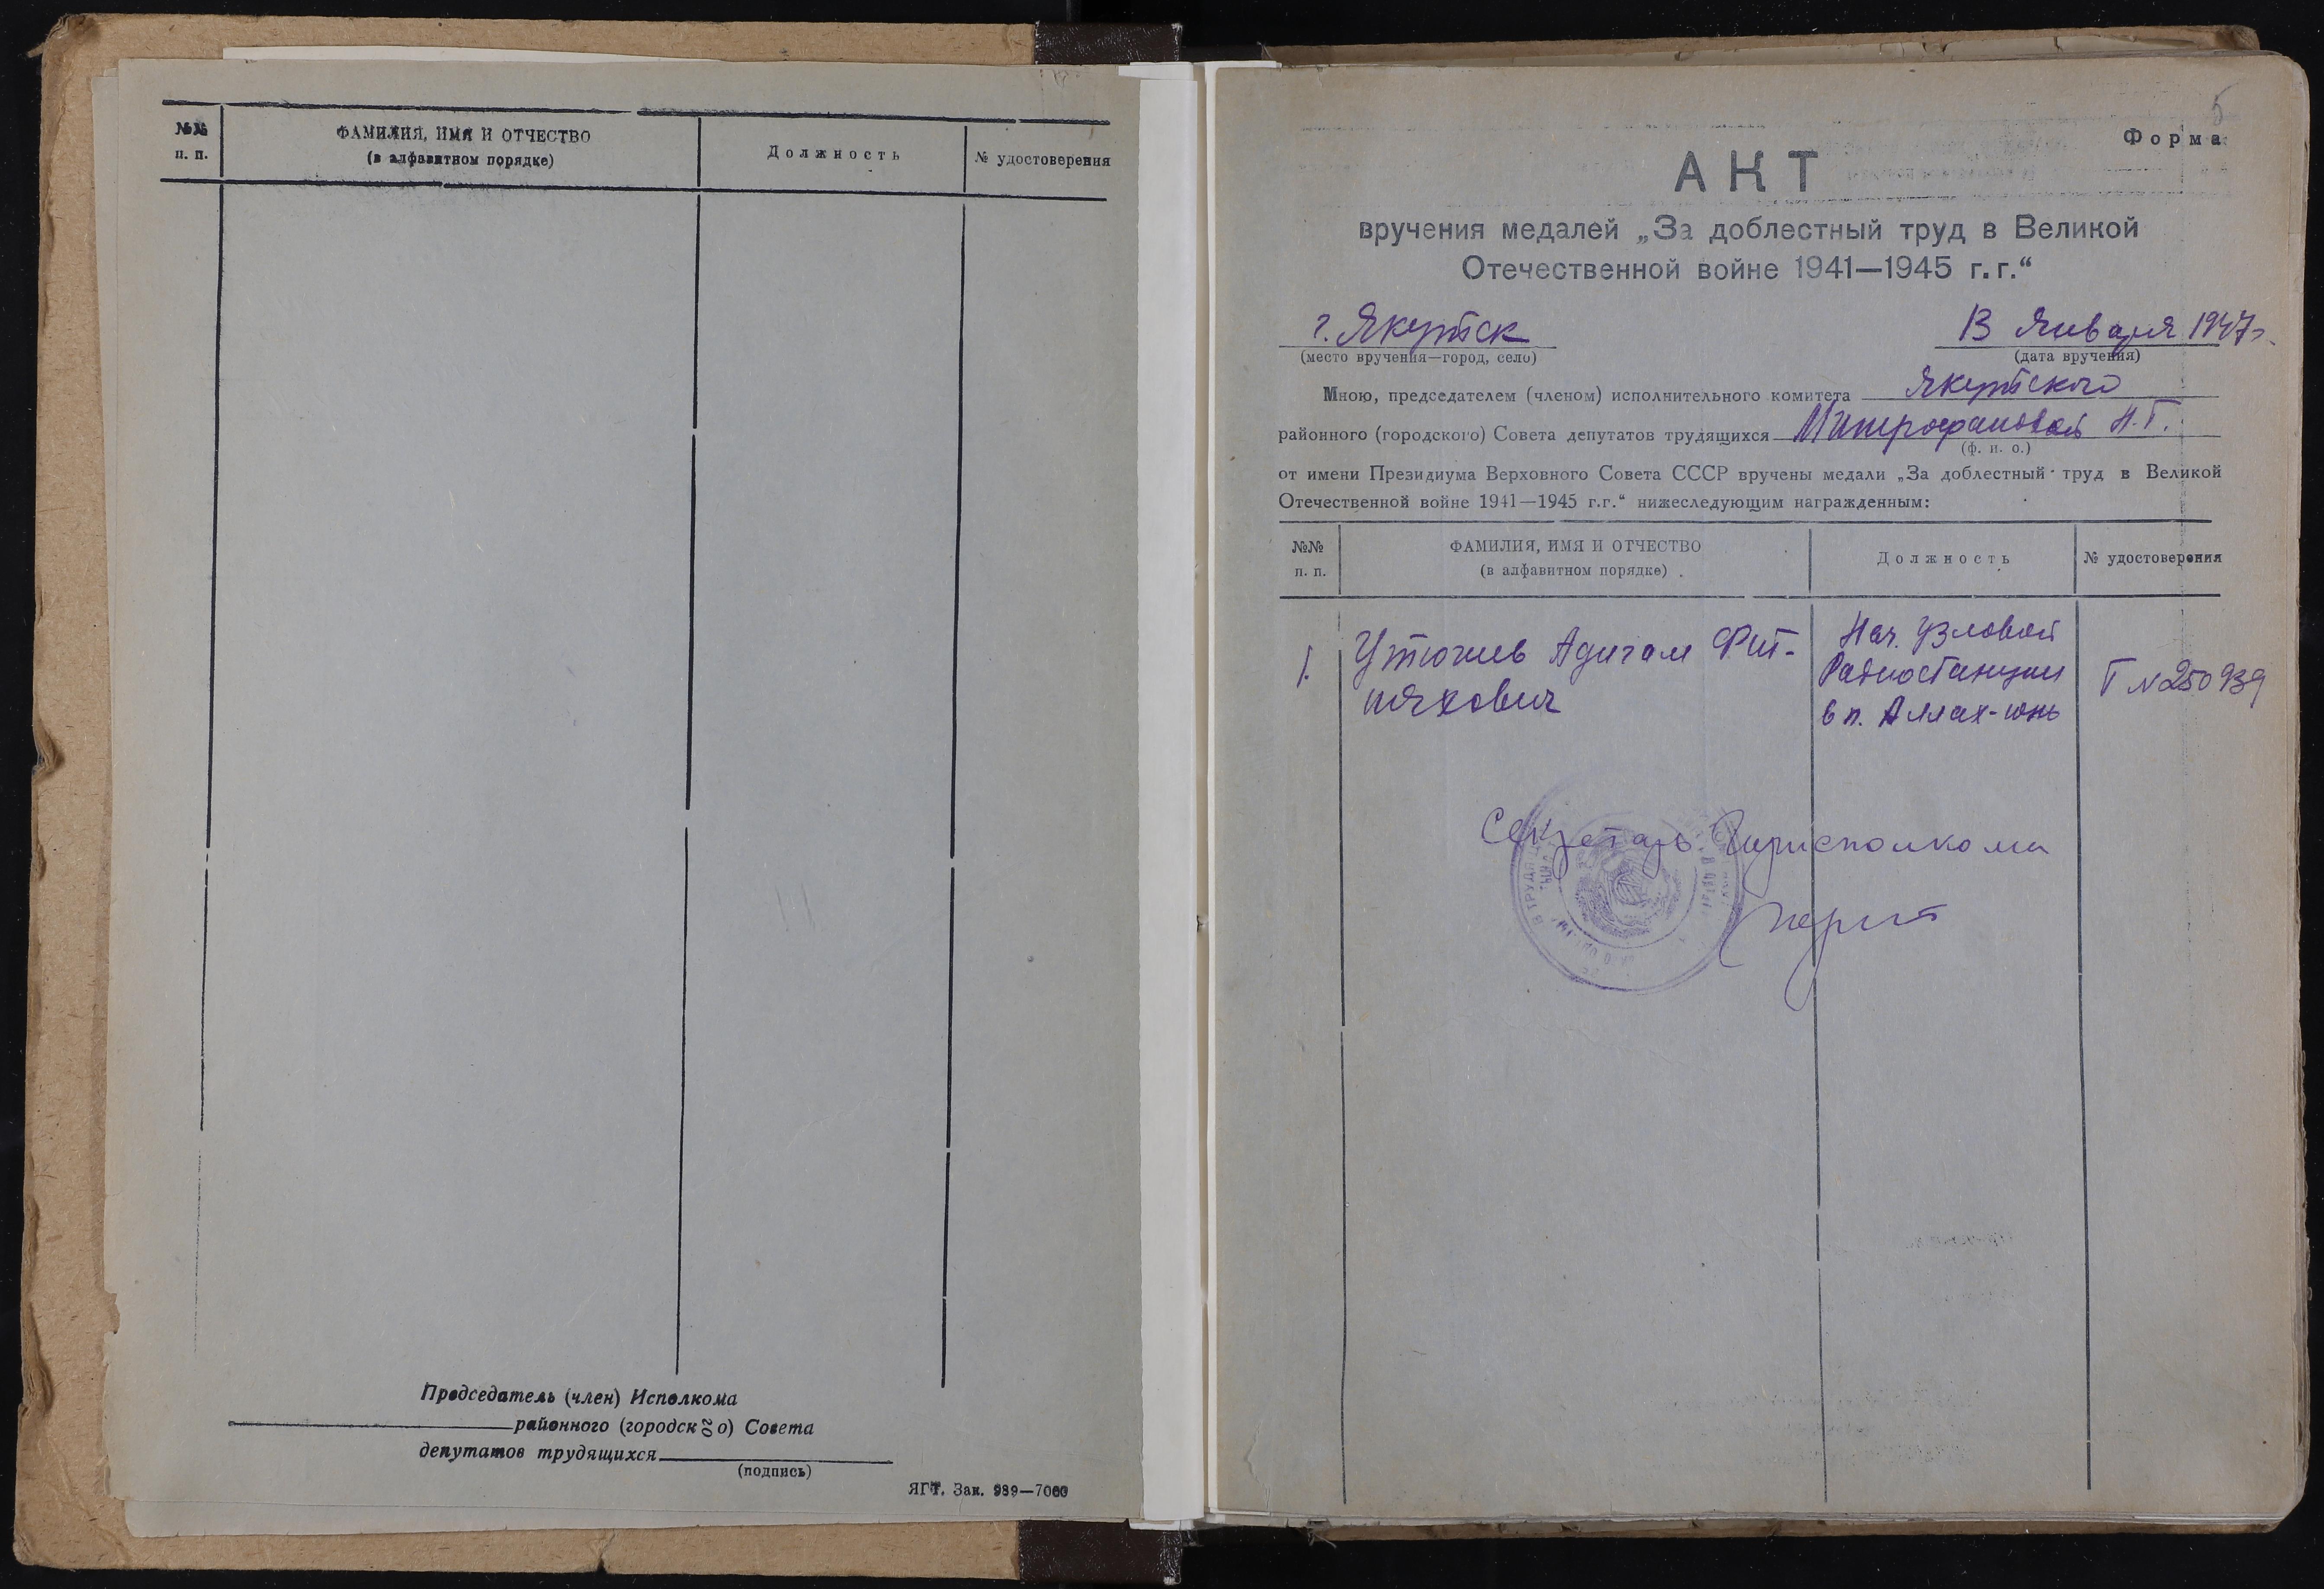 №№
п. п.
ФАМИЛИЯ, ИМЯ И ОТЧЕСТВО
(в алфавитном порядке)
Должность
№ удостоверения
Председатель (член) Исполкома
районного (городского) Совета
депутатов трудящихся
(подпись)
ЯГТ. Зак. 989—7000
5
Форма
АКТ
вручения медалей „За доблестный труд в Великой
Отечественной войне 1941—1945 г.г.“
г. Якутск
13 Января 1947 г.
(место вручения—город, село)
(дата вручения)
Мною, председателем (членом) исполнительного комитета Якутского
районного (городского) Совета депутатов трудящихся Митрофановой Н.Г.
(ф. и. о.)
от имени Президиума Верховного Совета СССР вручены медали „За доблестный труд в Великой
Отечественной войне 1941—1945 г.г.“ нижеследующим награжденным:
№№
п. п.
ФАМИЛИЯ, ИМЯ И ОТЧЕСТВО
(в алфавитном порядке)
Должность
№ удостоверения
1.
Адигам
Нач. узловой
Радиостанции
в п. Аллах-юнь
Г №250939
Секретарь Горисполкома